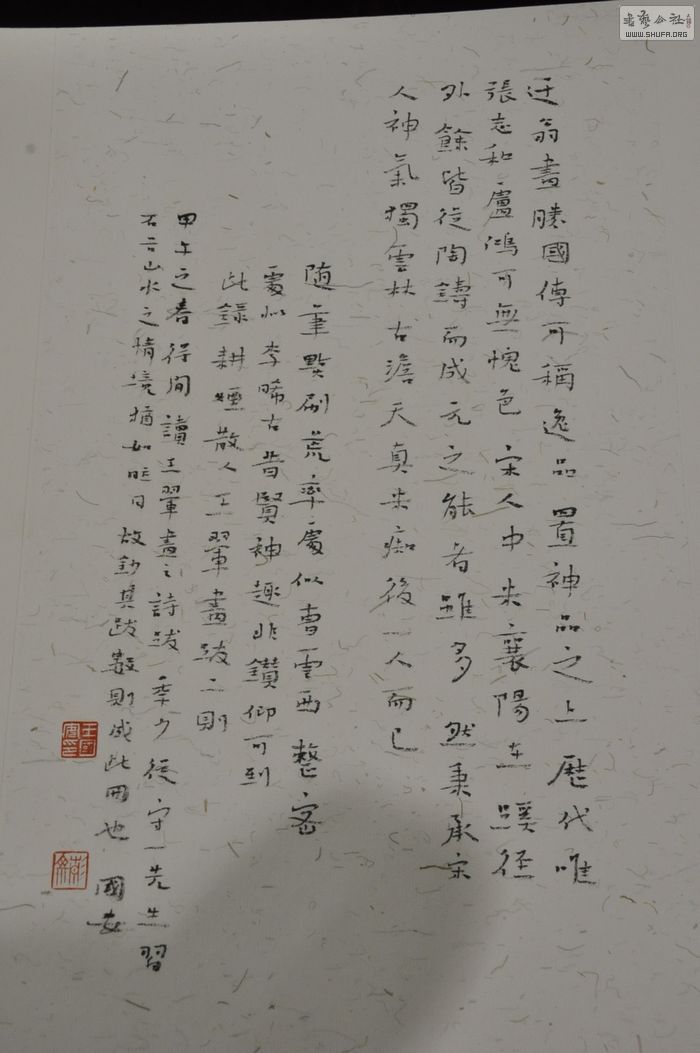 迂翁畫勝國傳可稱逸品置神品之上歷代唯
張志和盧鴻可無愧色宋人中米襄陽在蹊徑
外餘皆從陶鑄而成元之能者雖多然秉承宋
人神氣獨雲林古澹天真米痴後一人而已
隨筆點刷荒率處似曹雲西整密
處似李晞古昔賢神趣非鑽仰可到
此錄耕煙散人王翬畫跋二則
甲午之春得閒讀王翬畫之詩跋年少從守一先生習
石谷山水之情境猶如昨日故鈔其跋數則成此冊也 國安
書藝公社
WWW.SHUFA.ORG